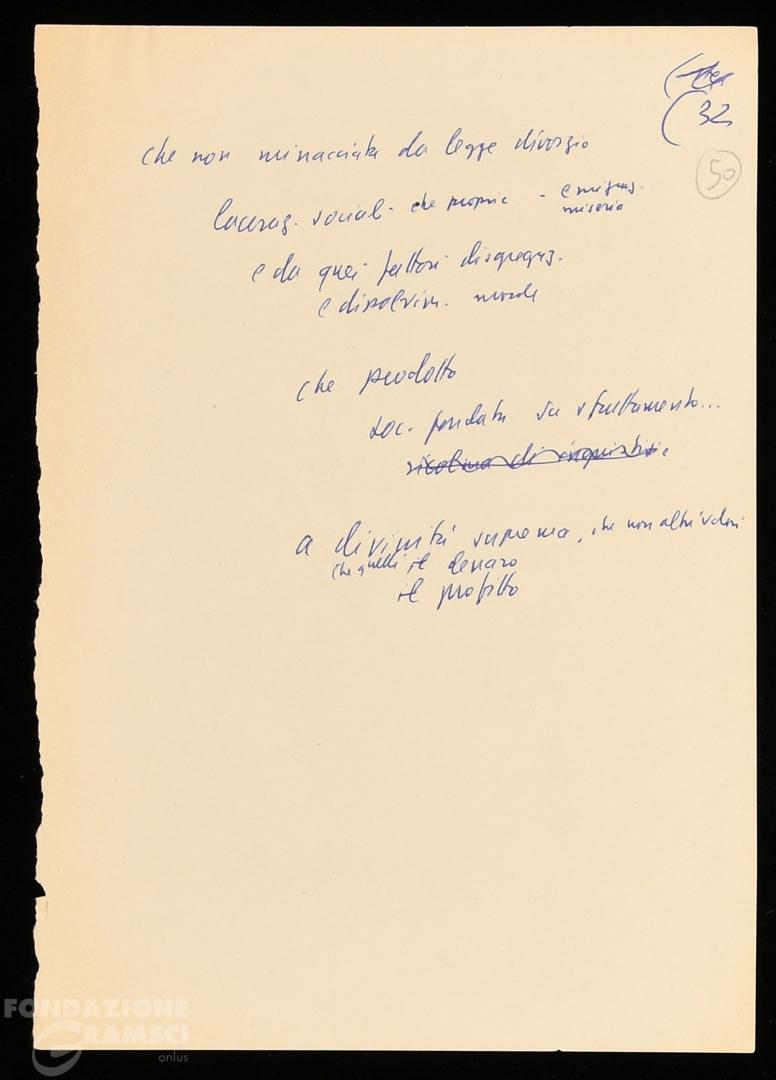 ( 32
50
che non minacciata da legge divorzio
laceraz. sociali - che promuo - emigraz.
miseria
e da quei fattori disgregaz.
e dissolvim. morale
che prodotto
soc. fondata su sfruttamento...
a divinità suprema, che non altri valori
che quelli il denaro
il profitto
FONDAZIONE
GRAMSCI
onlus